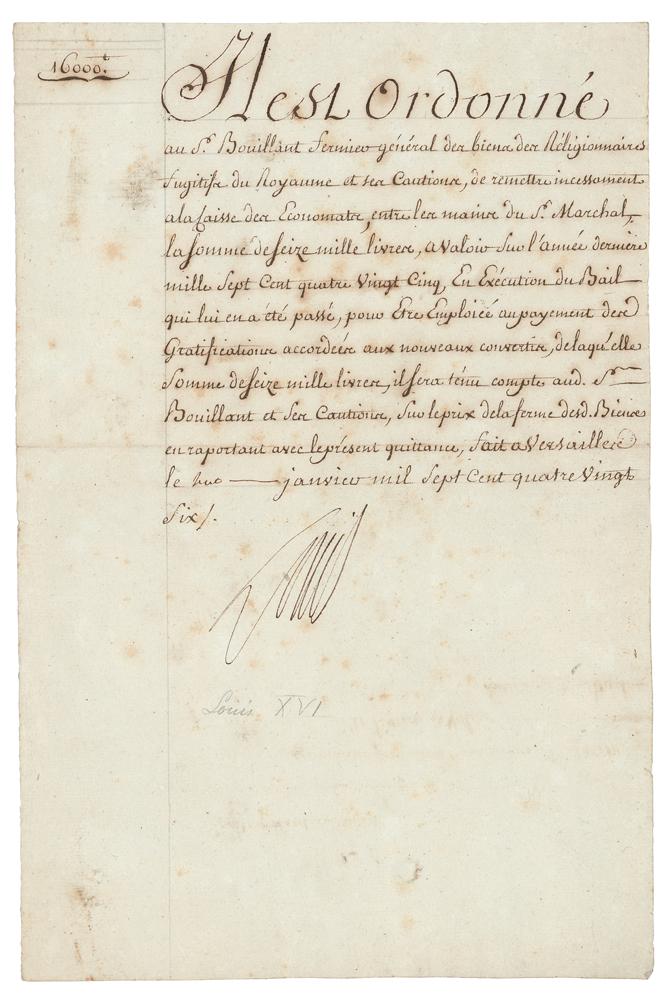 16000.ᵗ
Il est Ordonné
au Sr. Bouillant Fermier général des biens des Réligionnaires
fugitifs du Royaume et ses Cautions, de remettre incessament
a la Caisse des Economats, entre les mains du Sr. Marchal,
la somme de seize mille livres, a valoir sur l'année derniére
mille Sept Cent quatre Vingt Cinq, En Exécution du Bail
qui lui en a été passé, pour Etre Emploiée au payement des
Gratifications accordées aux nouveaux convertis, de laquelle
Somme de seize mille livres, il sera ténu compte aud. Sr.
Bouillant et Ses Cautions, sur le prix de la ferme desd. Biens
en raportant avec le présent quittance, fait a Versailles
le janvier mil Sept Cent quatre Vingt
Six /.
Louis
Louis XVI